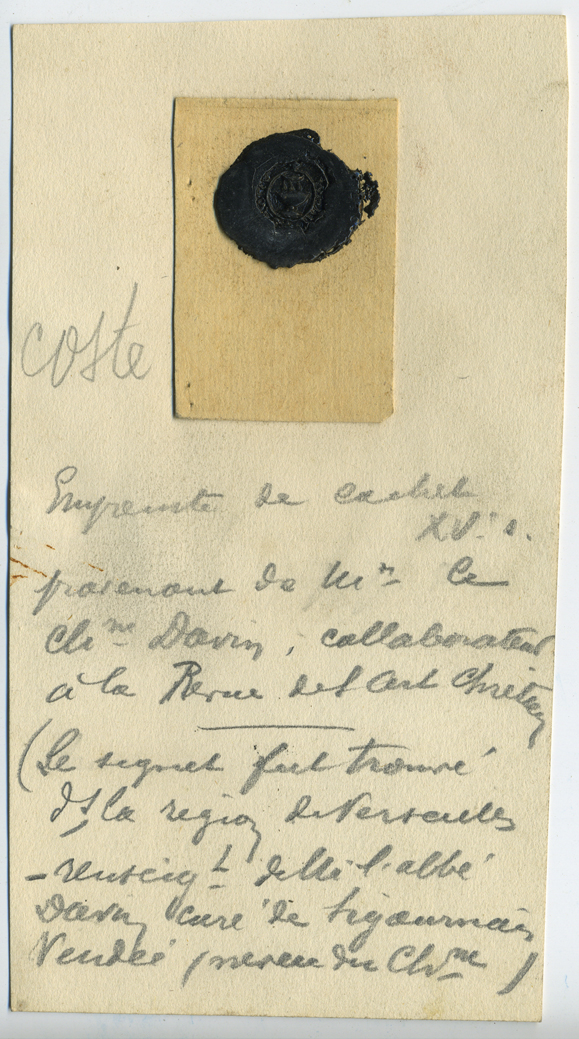 coste
Empreinte de cachet
XVe s.
provenant de Mr le
chne Davin, collaborateur
à la Revue de l'Art Chrétien
(Le signet fut trouvé
ds la région de Versailles
- renseigt de M. l'abbé
Davin curé de Sigournais
Vendée, neveu du Chne)